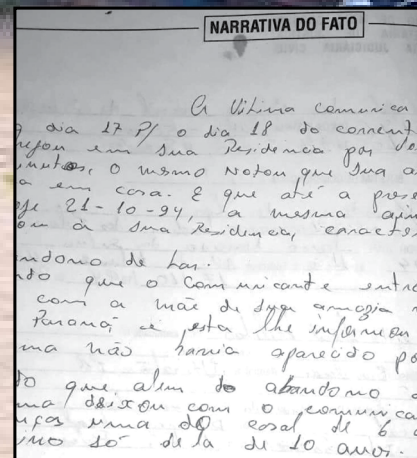 NARRATIVA DO FATO
A Vitima comunica
dia 17 P/ o dia 18 do corrent
em sua Residencia por
o mesmo Notou que sua a
a em casa. E que até a prese
21-10-94, a mesma ain
ou a sua Residencia, caracte
ndono de Lar.
ndo que o comunicante entr
com a mãe de sua amazia
Paraná, e esta lhe informou
ma não havia aparecido po
do que alem do abandono
ma deixou com o comunica
nças uma do casal de 6
uno só dela de 10 anos.